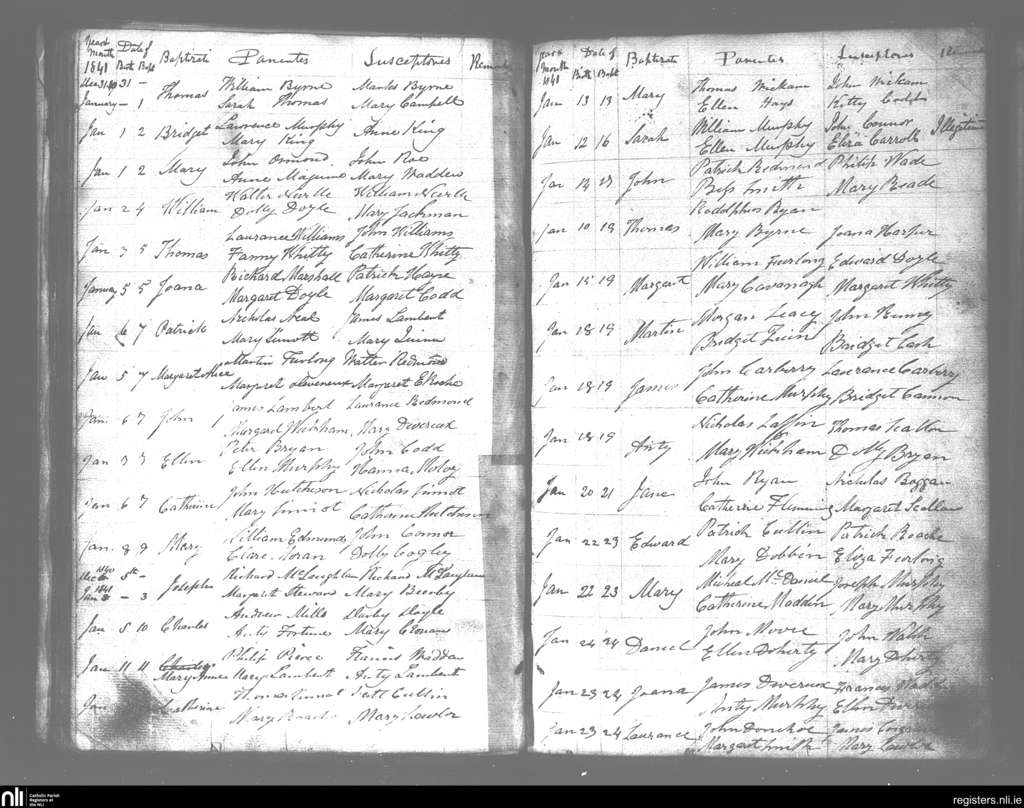 Year & Month 1841 Date of Birth Bapt Baptizati Parentes Susceptores
Dec 31 40 31 - Thomas William Byrne
January - 1 Sarah Thomas Mary Campell
Jan 1 2 Bridget Lawrence Murphy Anne King
Mary King
Jan 1 2 Mary John Ormond John Roe
Anne Maguire Mary Madden
Jan 2 4 William Walter Neville William Neville
Dolly Doyle Mary Jackman
Jan 3 5 Thomas Laurance Williams John Williams
Fanny Whitty Catherine Whitty
January 5 5 Joana Richard Marshall Patrick Hayse
Margaret Doyle Margaret Codd
Jan 6 7 Patrick Nicholas Neal James Lambert
Mary Sinnott Mary Quinn
Jan 5 7 Margaret Alice Martin Furlong Watter Redmond
Margret Devereux Margaret Roche
Jan 6 7 John James Lambert Laurance Redmond
Margaret Wickham Mary Devereux
Jan 3 7 Ellen Peter Bryan John Codd
Ellen Murphy Hanna
Jan 6 7 Catharine John Hutchison Nicholas Sinnot
Mary Sinnot Catharine Hutchinson
Jan 8 9 Mary William Edmunds John Connor
Clare Moran Dolly Cogley
1840 Dec 5th - Josephe Richard McLaughlan Richard McLaughlan
1841 Jan - 3 Margaret Steward Mary Beerby
Jan 5 10 Charles Andrew Mills Darby Doyle
Anty Fortune Mary
Jan 11 11 Charles Philip Pierce Francis Madden
Mary Anne Mary Lambert Anty Lambert
Jan Catharine Thomas Sinnot Patt Cullin
Mary Roach Mary Lawlor
Year & Month 1841 Date of Birth Bapt Baptizati Parentes Susceptores
Jan 13 13 Mary Thomas Wickam John Wickam
Ellen Hays Kitty Codd
Jan 12 16 Sarah William Murphy John Connor Illegitimate
Ellen Murphy Eliza Carroll
Jan 17 John Patrick Redmond Philip Wade
Bess Smith Mary Reade
Jan 10 18 Thomas Rodolphus Ryan
Mary Byrne Joana Harper
Jan 15 19 Margaret William Furlong Edward Doyle
Mary Cavanagh Margaret Whitty
Jan 18 19 Martin Morgan Leacy John Kenny
Bridget Quin Bridget Cash
Jan 18 19 James John Carberry Laurance Carberry
Catherine Murphy Bridget Cannon
Jan 18 19 Anty Nicholas Laffin Thomas Scallan
Mary Wickham Dolly Bryan
Jan 20 21 Jane John Ryan Nicholas Boggan
Catherine Fleming Margaret Scallan
Jan 22 23 Edward Patrick Cullin Patrick Roache
Mary Dobben Eliza Furlong
Jan 22 23 Mary Micheal McDaniel Joseph Murphy
Catharine Madden Mary Murphy
Jan 24 24 Daniel John Moore John Walsh
Ellen Doherty Mary Doherty
Jan 23 24 Joana James Devereux Frances Wadden
Anty Murphy Ellen Devereux
Jan 23 24 Laurance John Donohoe James
Margaret Smith Mary Lawlor
nli Catholic Parish Registers at the NLI
registers.nli.ie